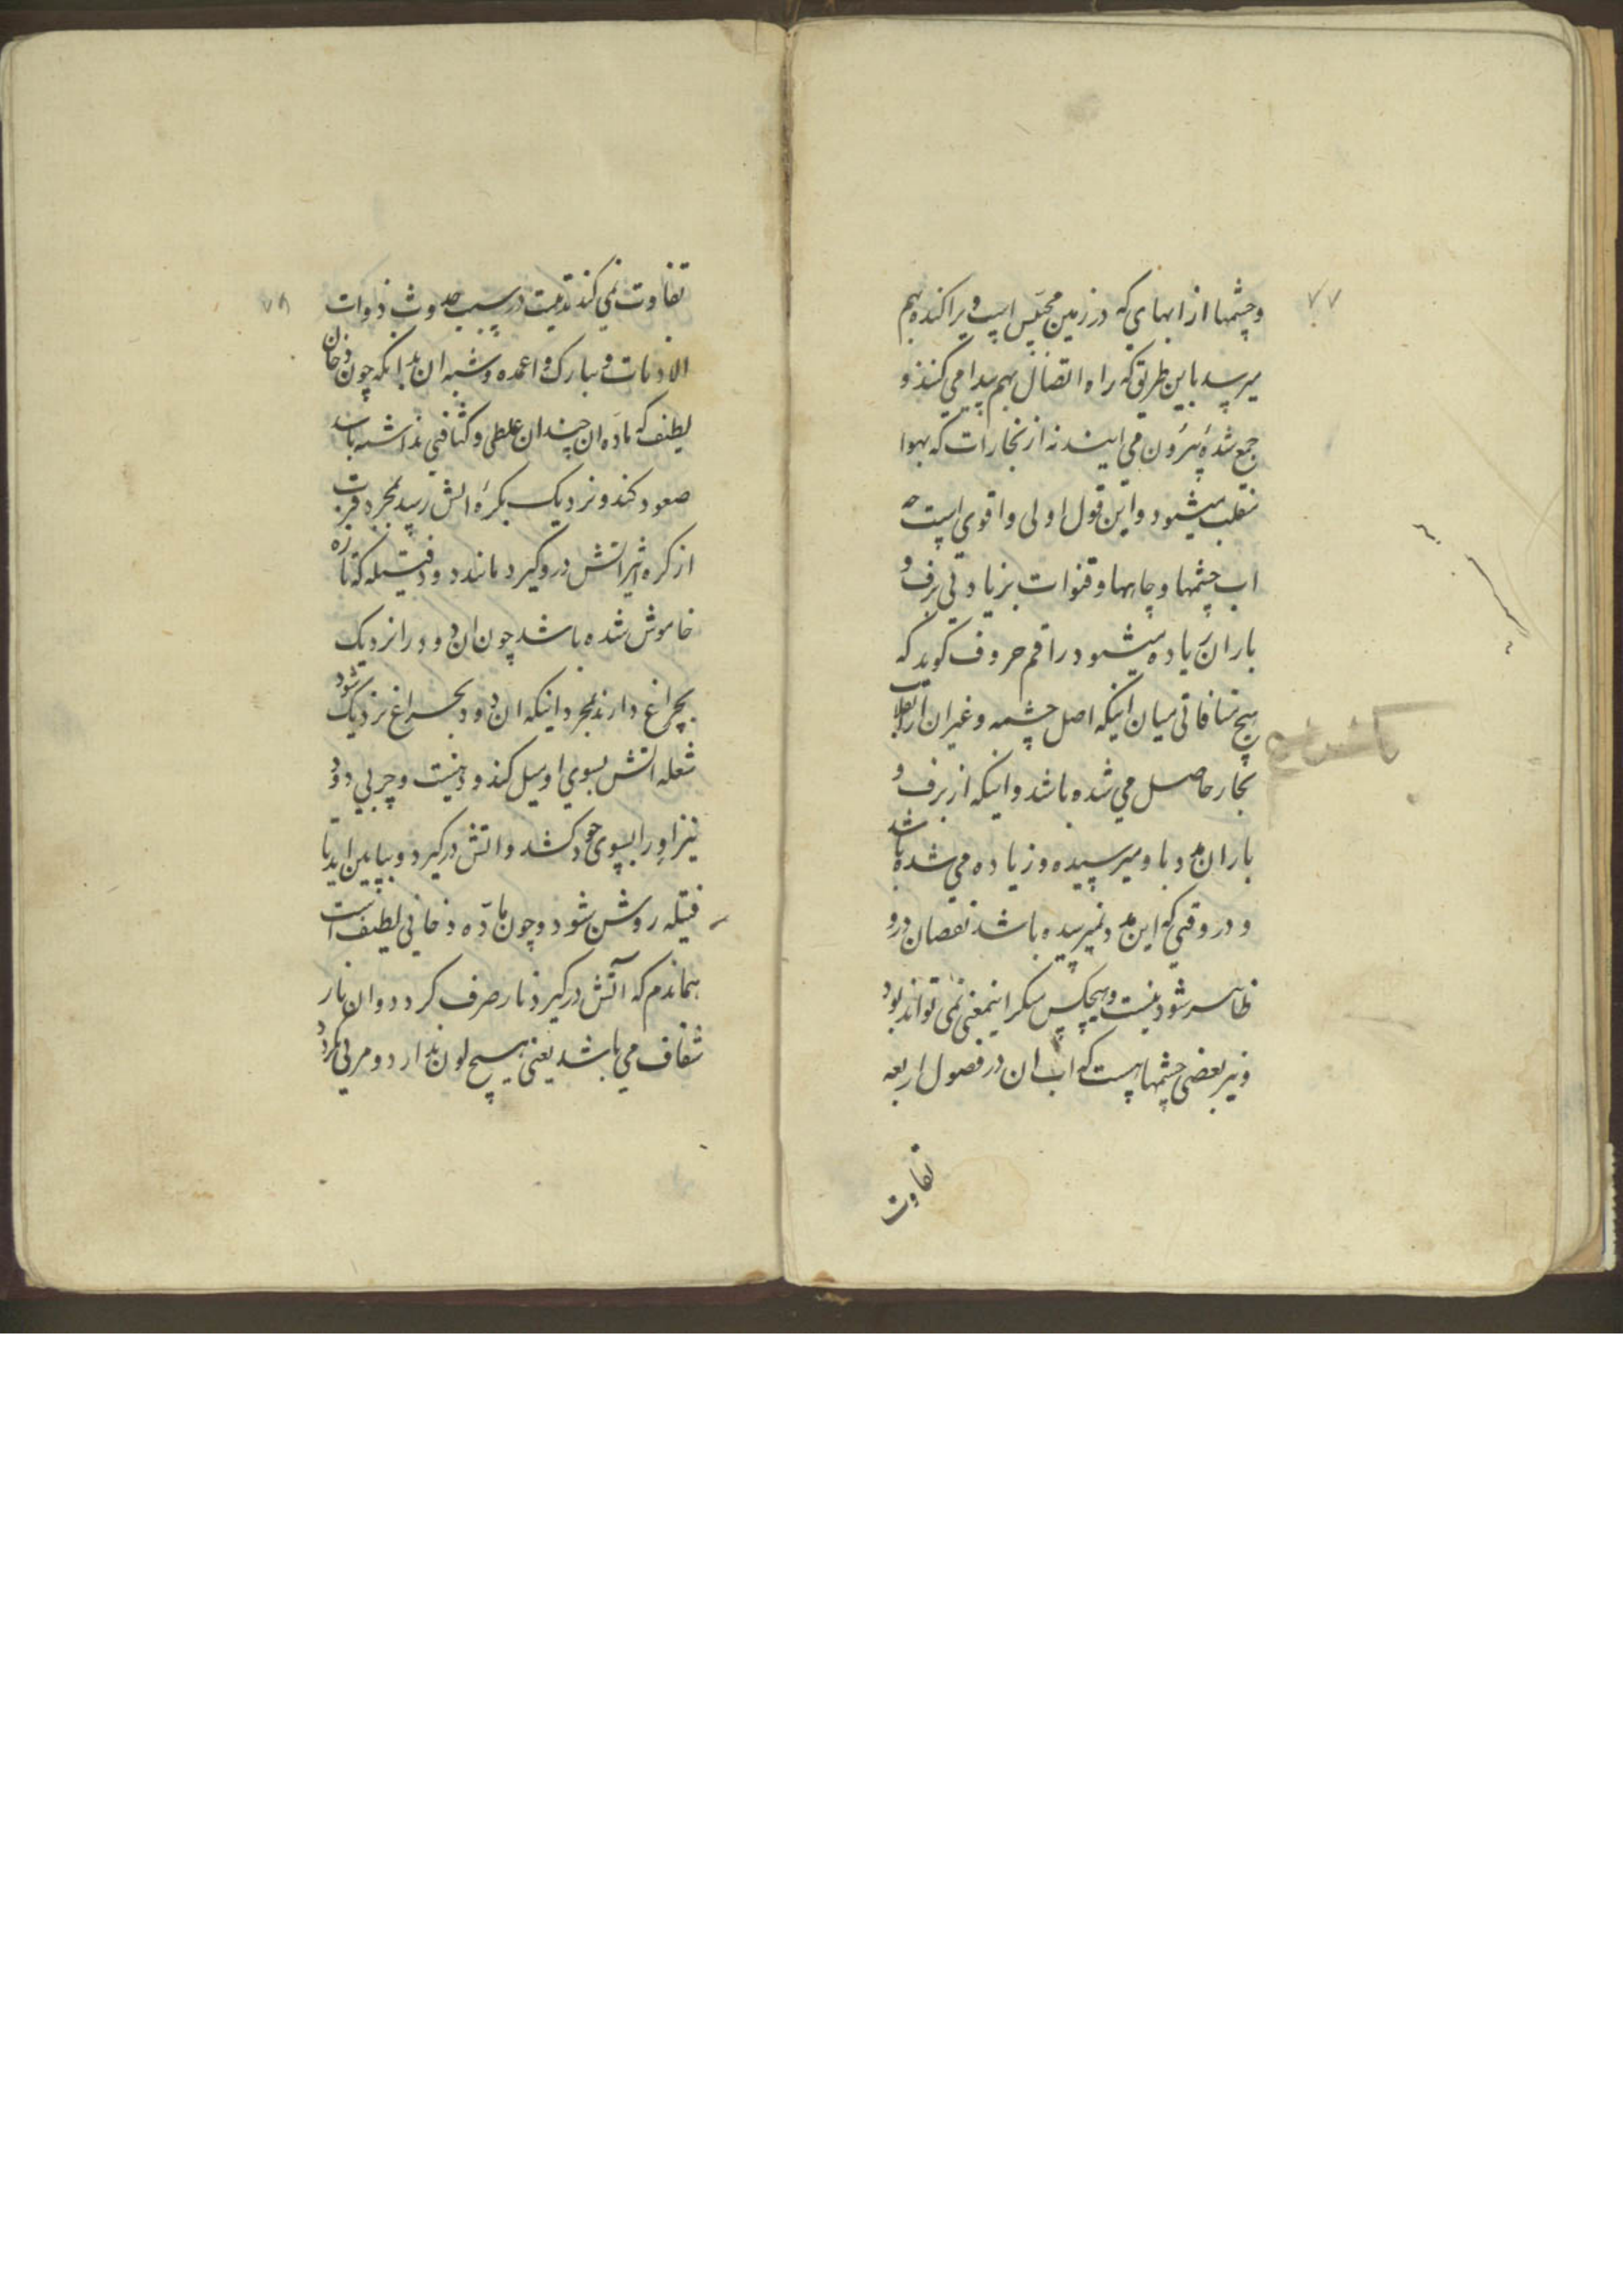 ۷۷
و چشمها از ابهای که در زمین محتبس است و پراکنده بهم
میرسد باین طریق که راه اتصال بهم پیدا می کنند و
جمع شده بیرون می ایند نه از بخارات که بهوا
منقلب میشود و این قول اولی و اقوی است چه
اب چشمها و چاهها و قنوات بزیادتی برف و
باران زیاده میشود راقم حروف کوید که
هیچ منافاتی میان اینکه اصل چشمه و غیر ان از انقلاب
بخار حاصل می شده باشد و اینکه از برف و
باران مدد باو میرسیده و زیاده می شده باشد
و در وقتی که این مدد نمیرسیده باشد نقصان درو
ظاهر شود نیست و هیچکس منکر اینمعنی نمی تواند بود
و نیز بعضی چشمها هست که اب ان در فصول اربعه
تفاوت
۷۸
تفاوت نمی کند تتمیت در سبب حدوث ذوات
الاذناب و نیازک و اعمده و شبه ان بدانکه چون دخان
لطیف که ماده ان چندان غلظی و کثافتی نداشته باشد
صعود کند و نزدیک بکره اتش رسد بمجرد قربت
از کره اثیر اتش در و گیرد مانند دود فتیله که تازه
خاموش شده باشد چون ان دود را نزدیک
بچراغ دارند بمجرد اینکه ان دود بچراغ نزدیک شود
شعله اتش بسوی او میل کند و دهنیت و چربی دود
نیز او را بسوی خود کشد و اتش در گیرد و بپایین اید تا
فتیله روشن شود و چون ماده دخانی لطیف است
هماندم که آتش در گیرد نار صرف گردد و ان نار
شفاف می باشد یعنی هیچ لون ندارد و مرئی نگردد